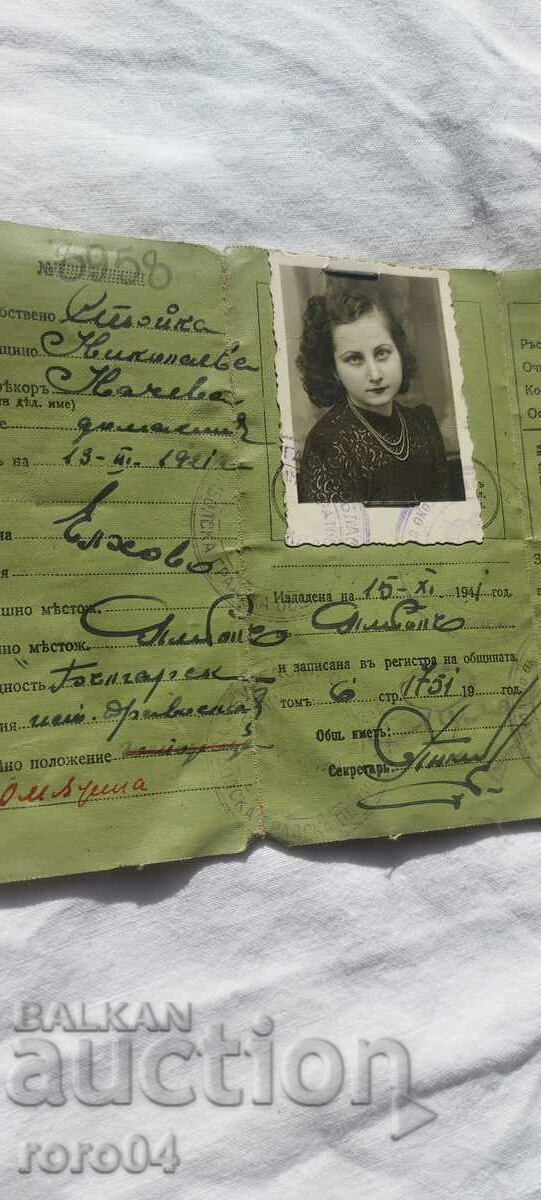 № 3958
бствено Стойка
ащино Николаева
ѣкоръ Начева
и дѣд. име)
е домакиня
ъ на 13-III-1921 г.
на Елхово
я
ошно мѣстож. Ямболъ
но мѣстож. Ямболъ
дность Българск
ия ист. православ
но положение
омѫжена
Издадена на 15-XI 1941 год.
Ямболъ
и записана въ регистра на общината
томъ 6 стр. 1751 19 год.
Общ. кметъ:
Секретарь
Ръс
Очи
Ко
Ос
BALKAN
auction
roro04